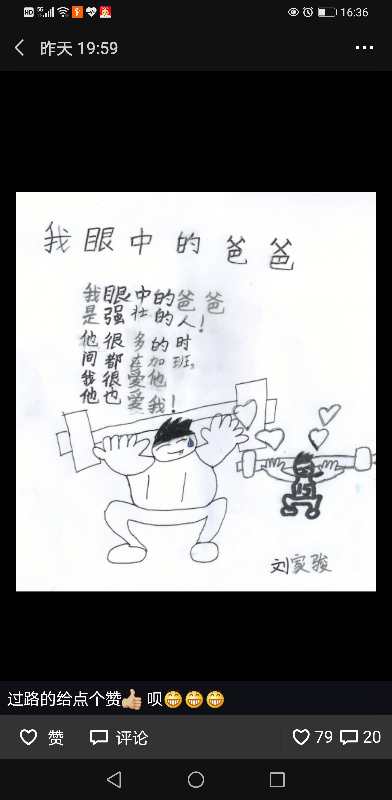 16:36
昨天 19:59
我眼中的爸爸
我眼中的爸爸
是强壮的人！
他很多的时
间都在加班，
我很爱他
他也爱我！
刘家骏
过路的给点个赞👍🏼 呗😁😁😁
赞 评论 79 20